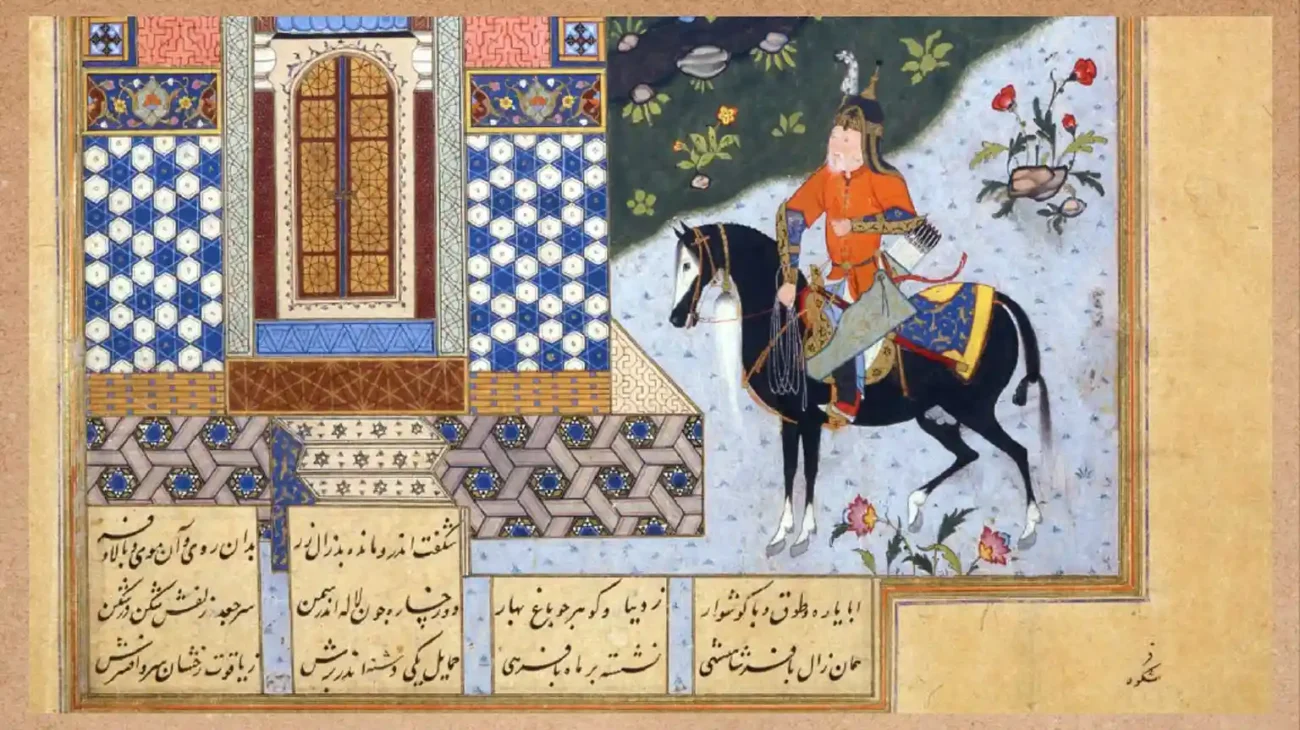 شگفت اندرو مانده بد زال زر بدان روی و آن موی و بالا و فر
ابا یاره و طوق و با گوشوار ز دیبا و گوهر چو باغ بهار دو رخساره چون لاله اندر سمن سر جعد زلفش شکن در شکن
همان زال با فر شاهنشهی نشسته بر ماه با فرهی حمایل یکی دشنه اندر برش ز یاقوت رخشان افسرش
شکوه